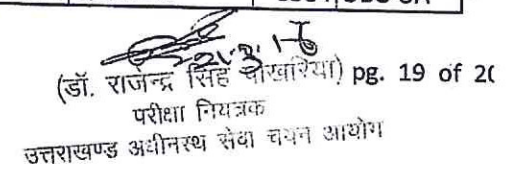 21.3.18
(डॉ. राजेन्द्र सिंह पोखरिया) pg. 19 of 20
परीक्षा नियंत्रक
उत्तराखण्ड अधीनस्थ सेवा चयन आयोग